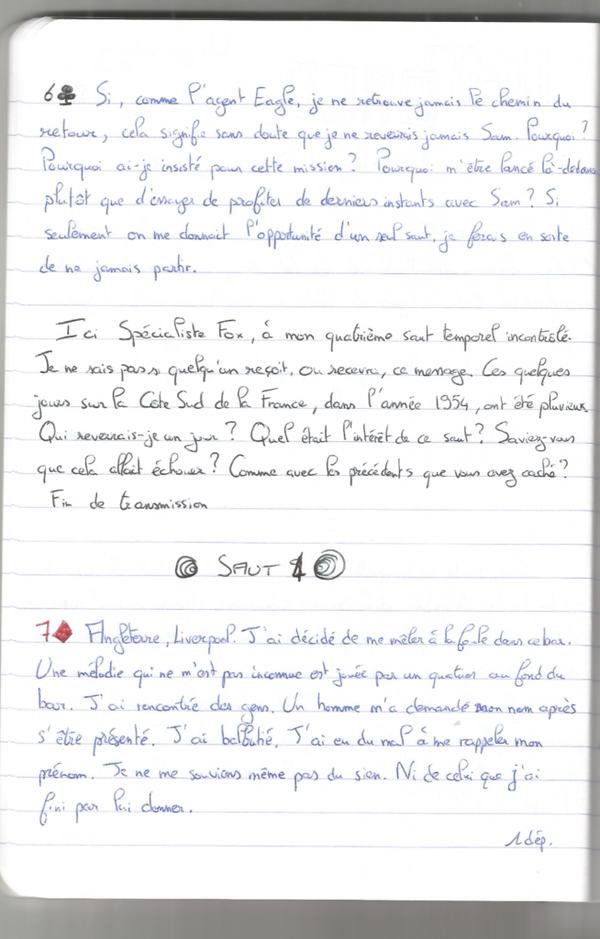 6♣ Si, comme l'agent Eagle, je ne retrouve jamais le chemin du
retour, cela signifie sans doute que je ne reverrais jamais Sam. Pourquoi ?
Pourquoi ai-je insisté pour cette mission ? Pourquoi m'être lancé là-dedans
plutôt que d'essayer de profiter de derniers instants avec Sam ? Si
seulement on me donnait l'opportunité d'un seul saut, je ferais en sorte
de ne jamais partir.
Ici Spécialiste Fox, à mon quatrième saut temporel incontrôlé.
Je ne sais pas si quelqu'un reçoit, ou recevra, ce message. Ces quelques
jours sur la Côte Sud de la France, dans l'année 1954, ont été pluvieux.
Qui reverrais-je un jour ? Quel était l'intérêt de ce saut ? Saviez-vous
que cela allait échouer ? Comme avec les précédents que vous avez caché ?
Fin de transmission
SAUT
7♦ Angleterre, Liverpool. J'ai décidé de me mêler à la foule dans ce bar.
Une mélodie qui ne m'est pas inconnue est jouée par un quatuor au fond du
bar. J'ai rencontré des gens. Un homme m'a demandé mon nom après
s'être présenté. J'ai balbutié. J'ai eu du mal à me rappeler mon
prénom. Je ne me souviens même pas du sien. Ni de celui que j'ai
fini par lui donner.
1 dép.